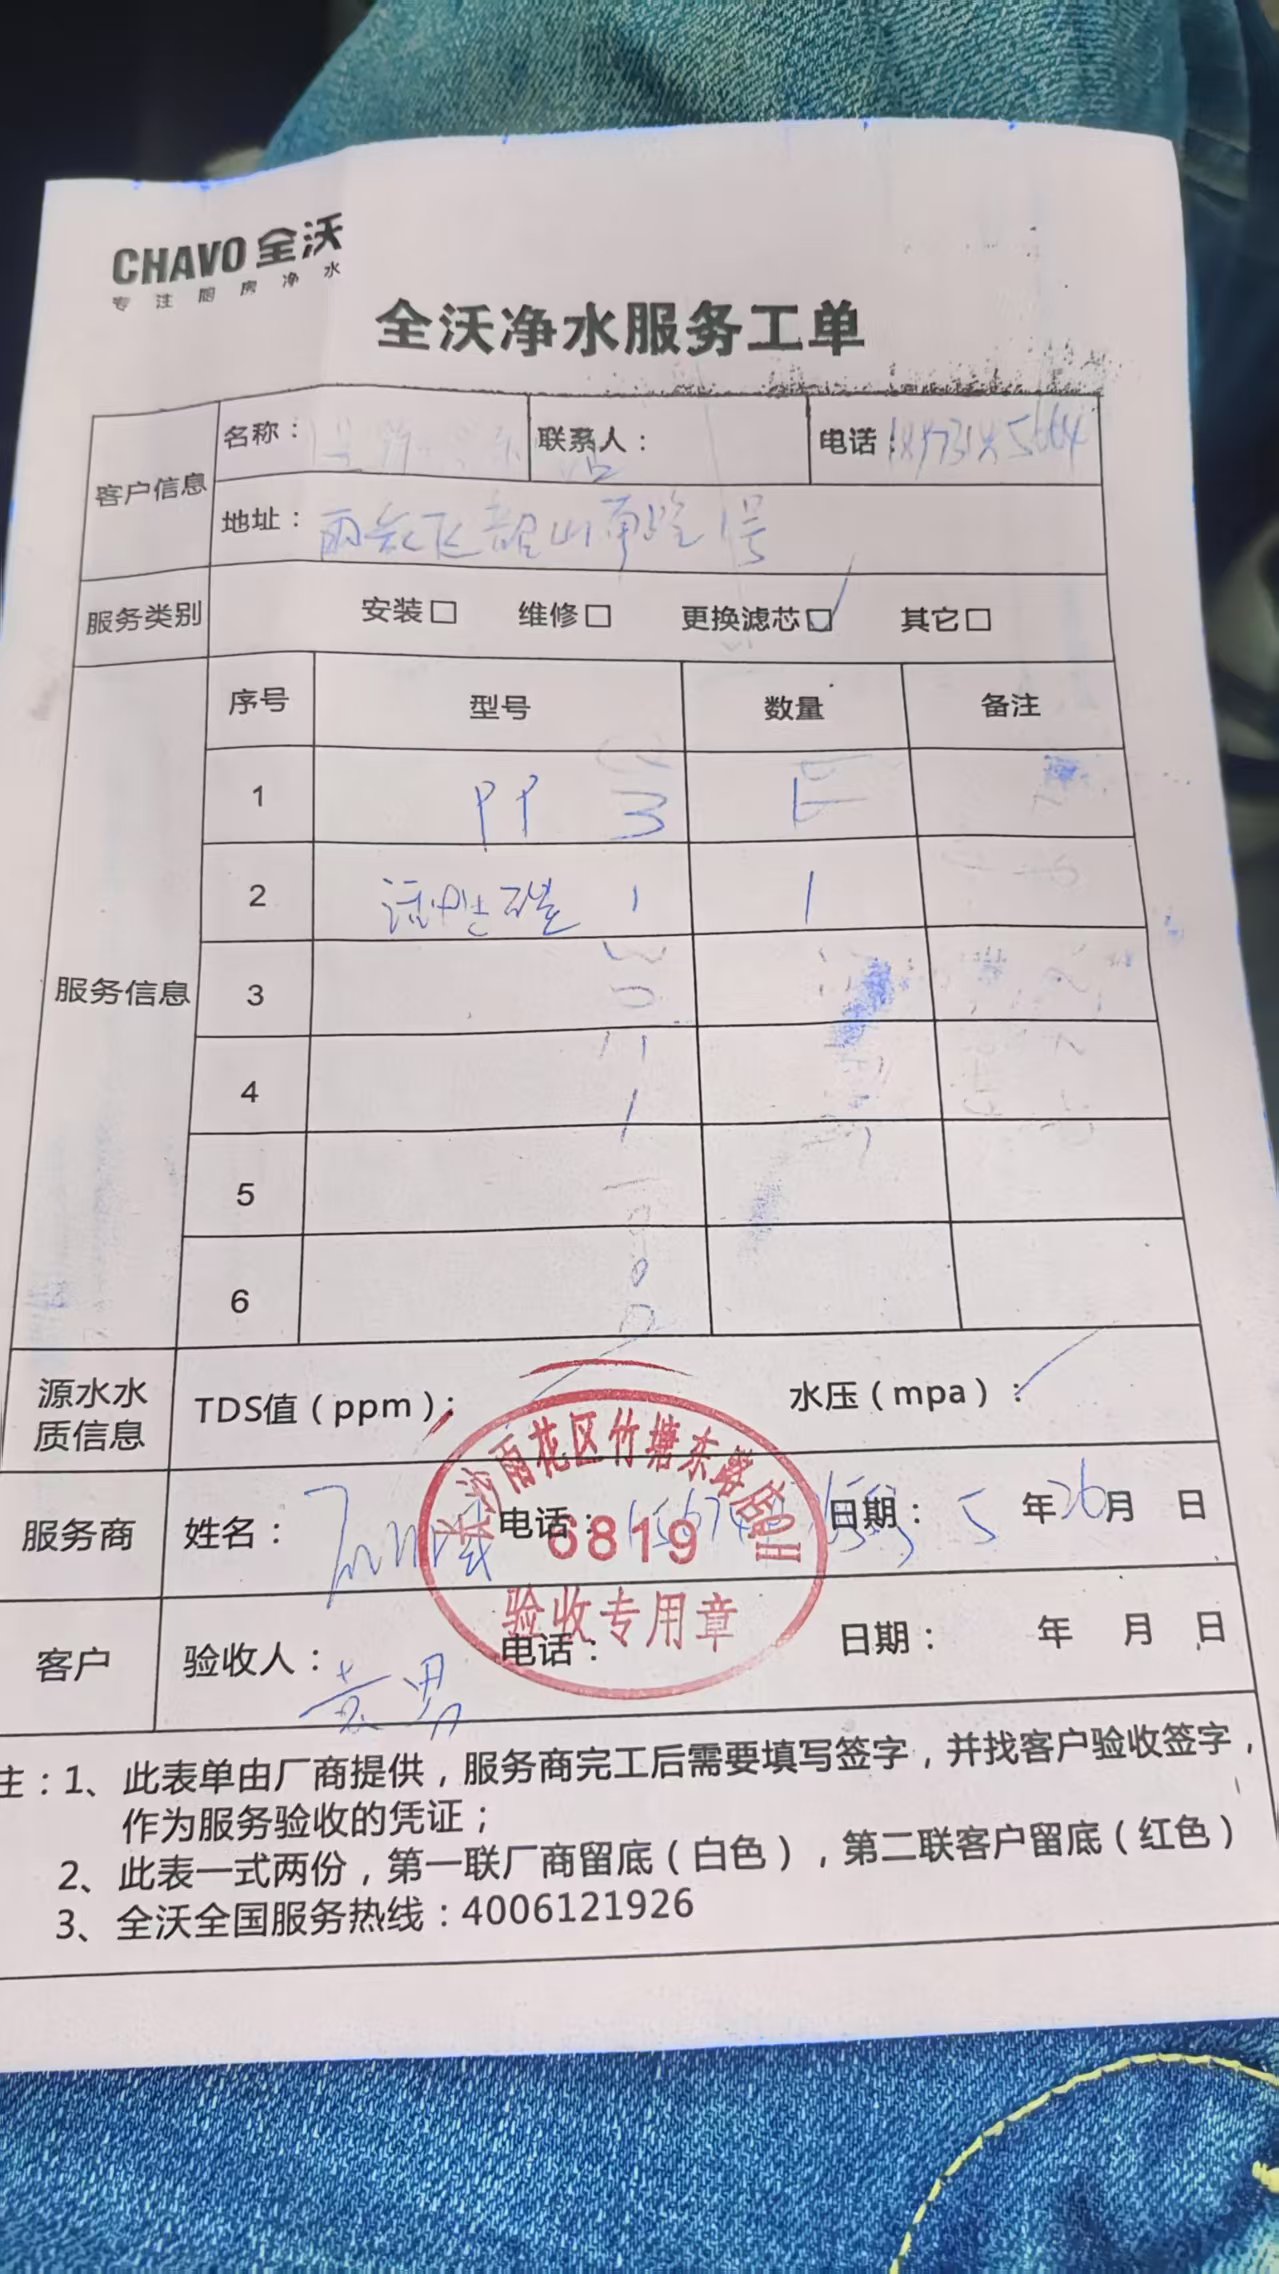 CHAVO 全沃
专注厨房净水
全沃净水服务工单
客户信息 名称： 联系人： 电话：
地址： 韶山南路1号
服务类别 安装□ 维修□ 更换滤芯□ 其它□
服务信息 序号 型号 数量 备注
1 PP 3
2 活性碳 1 1
3
4
5
6
源水水质信息 TDS值（ppm）： 水压（mpa）：
服务商 姓名： 电话： 日期： 5 年 26 月 日
雨花区竹塘东路店
6819
验收专用章
客户 验收人：黄男 电话： 日期： 年 月 日
注：1、此表单由厂商提供，服务商完工后需要填写签字，并找客户验收签字，
作为服务验收的凭证；
2、此表一式两份，第一联厂商留底（白色），第二联客户留底（红色）
3、全沃全国服务热线：4006121926